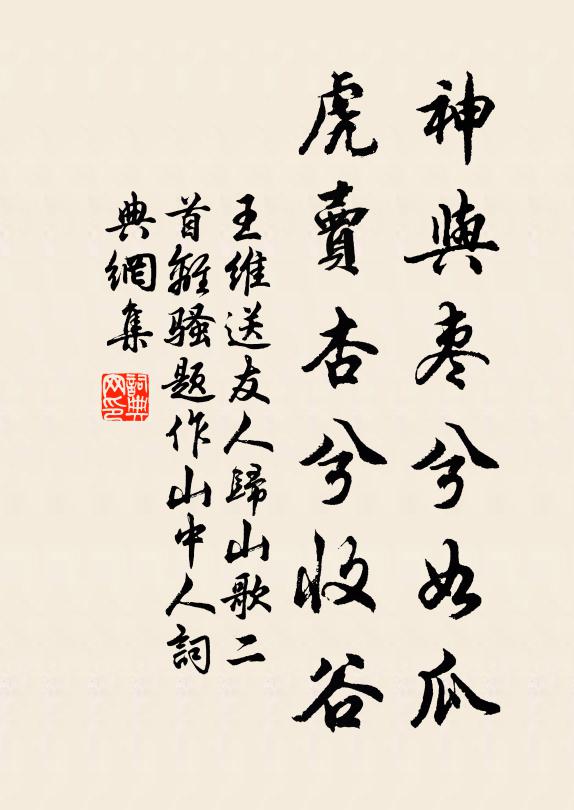 神與棗兮如瓜
虎賣杏兮收谷
王維送友人歸山歌二
首離騷題作山中人詞
典網集
詞典網印